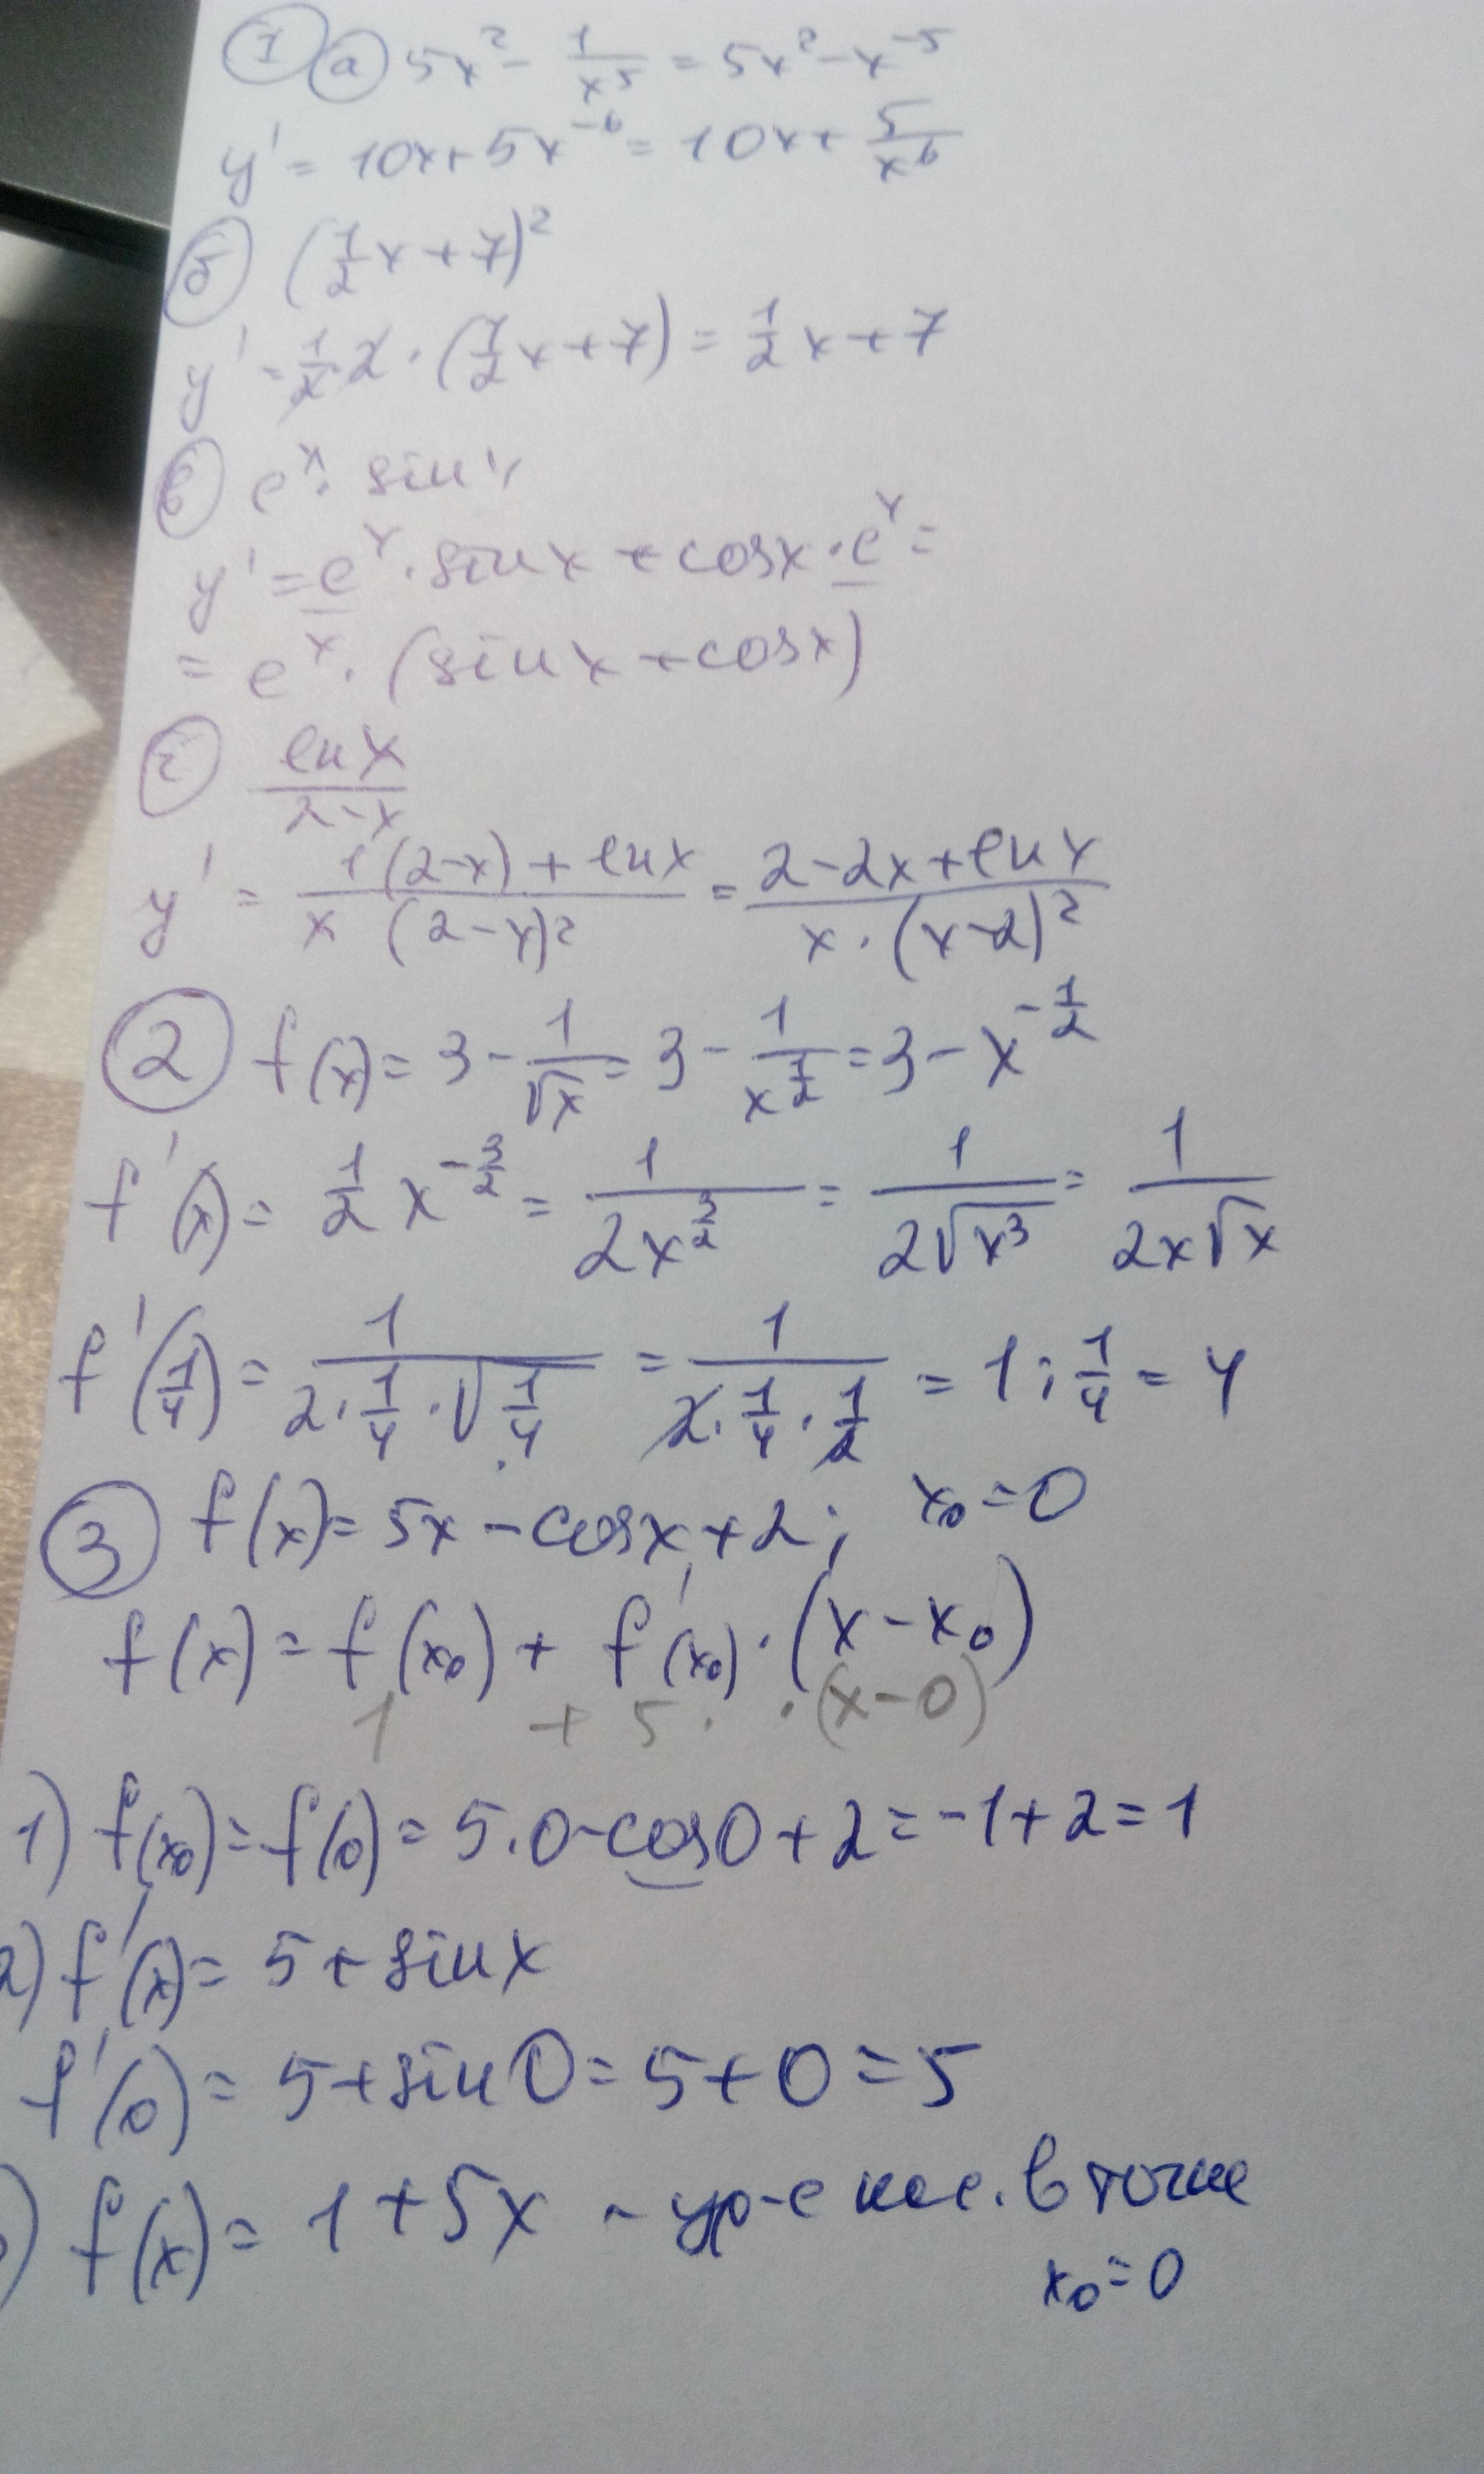 1 а 5x² - 1/x⁵ = 5x² - x⁻⁵
y' = 10x + 5x⁻⁶ = 10x + 5/x⁶
б (1/2 x + 7)²
y' = 1/2 · 2 · (1/2 x + 7) = 1/2 x + 7
в eˣ · sin x
y' = eˣ · sin x + cos x · eˣ =
= eˣ · (sin x + cos x)
г ln x / 2-x
y' = 1(2-x) + ln x / x (2-x)² = 2-2x+ln x / x · (x-2)²
2 f(x) = 3 - 1/√x = 3 - 1/x^(1/2) = 3 - x^(-1/2)
f'(x) = 1/2 x^(-3/2) = 1/2x^(3/2) = 1/2√x³ = 1/2x√x
f'(1/4) = 1/(2 · 1/4 · √1/4) = 1/(2 · 1/4 · 1/2) = 1 : 1/4 = 4
3 f(x) = 5x - cos x + 2; x₀ = 0
f(x) = f(x₀) + f'(x₀) · (x - x₀)
1 + 5 · · (x-0)
1) f(x₀) = f(0) = 5·0 - cos0 + 2 = -1+2 = 1
2) f'(x) = 5 + sin x
f'(0) = 5 + sin 0 = 5 + 0 = 5
) f(x) = 1 + 5x - ур-е кас. в точке
x₀ = 0